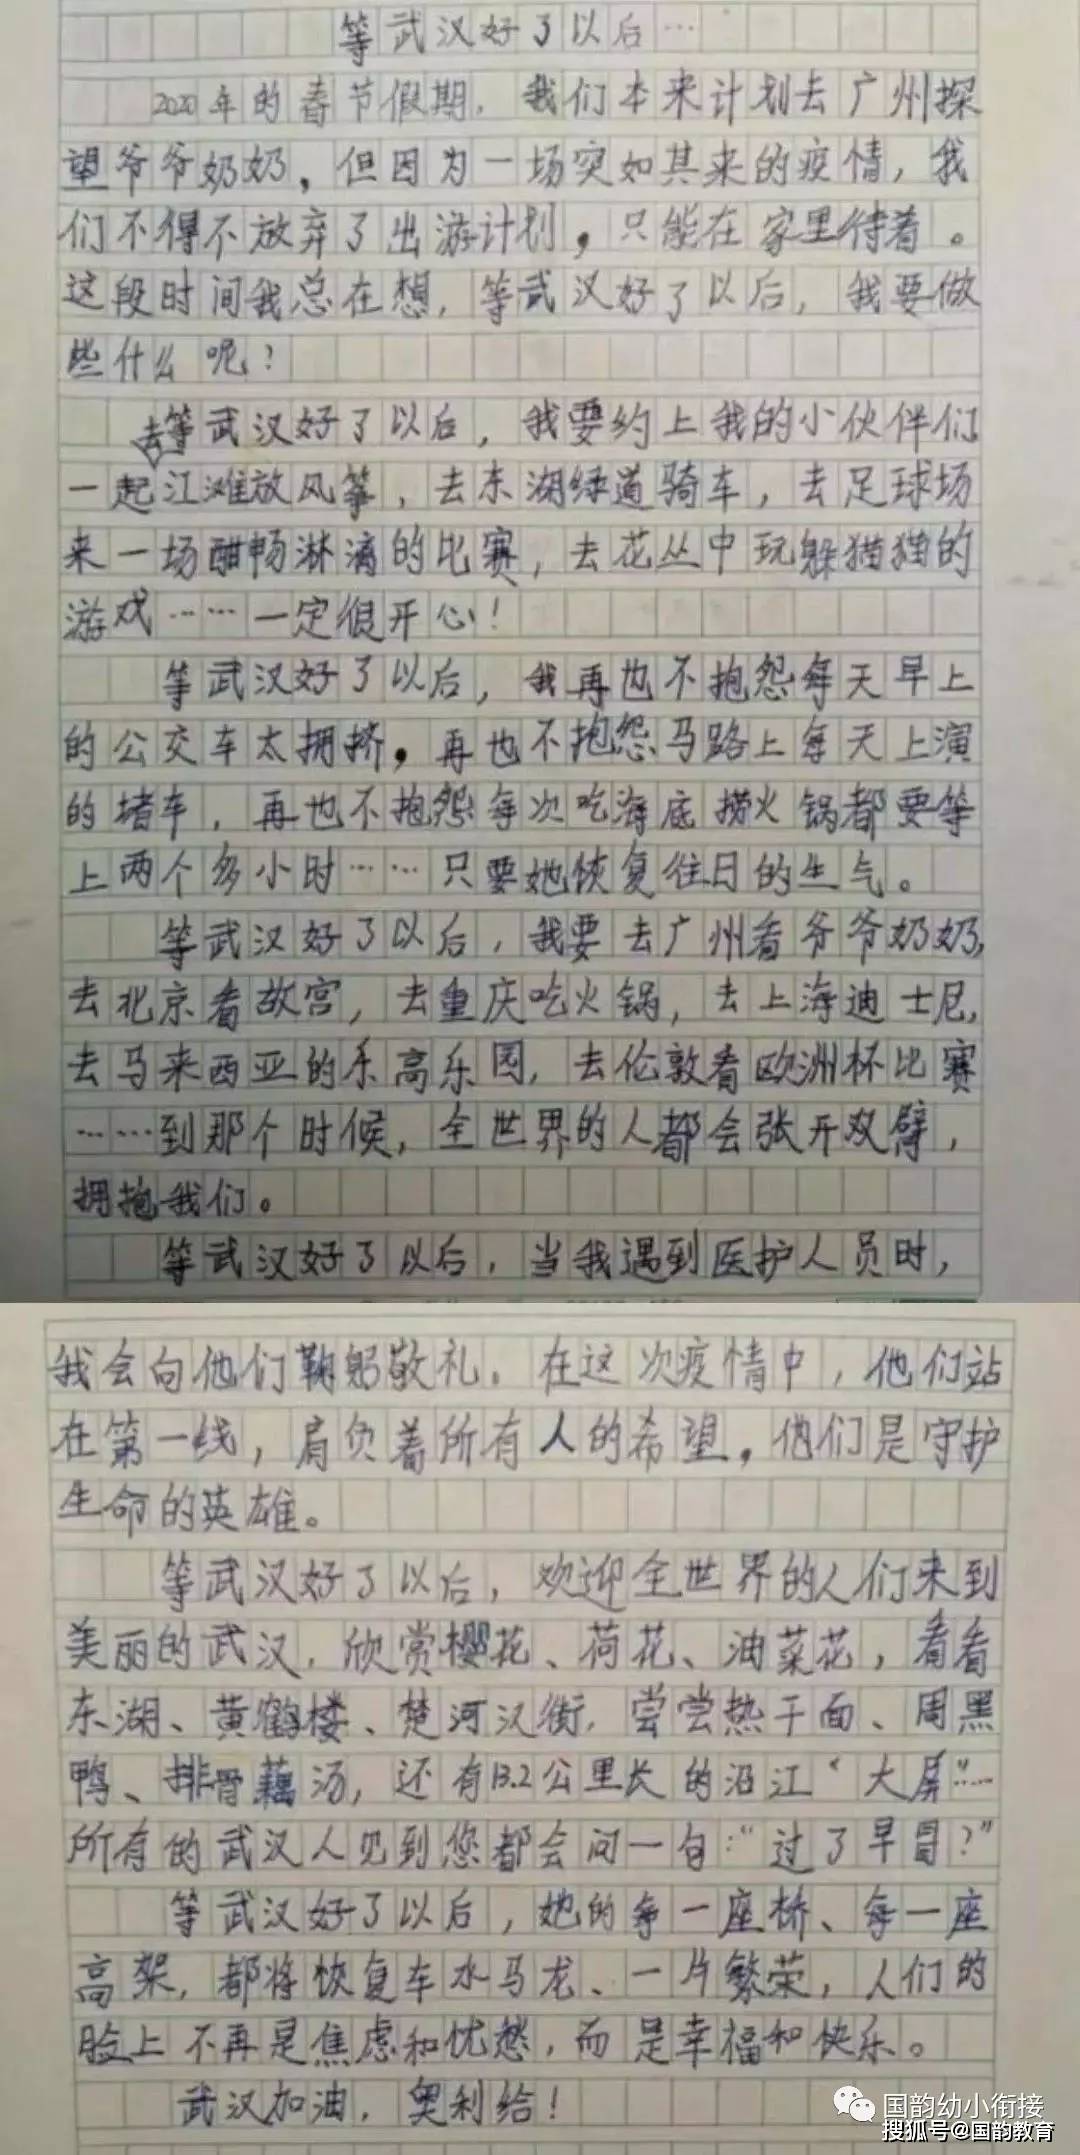 等武汉好了以后…
2020年的春节假期，我们本来计划去广州探
望爷爷奶奶，但因为一场突如其来的疫情，我
们不得不放弃了出游计划，只能在家里待着。
这段时间我总在想，等武汉好了以后，我要做
些什么呢？
等武汉好了以后，我要约上我的小伙伴们
一起去江滩放风筝，去东湖绿道骑车，去足球场
来一场酣畅淋漓的比赛，去花丛中玩躲猫猫的
游戏……一定很开心！
等武汉好了以后，我再也不抱怨每天早上
的公交车太拥挤，再也不抱怨马路上每天上演
的堵车，再也不抱怨每次吃海底捞火锅都要等
上两个多小时……只要她恢复往日的生气。
等武汉好了以后，我要去广州看爷爷奶奶，
去北京看故宫，去重庆吃火锅，去上海迪士尼，
去马来西亚的乐高乐园，去伦敦看欧洲杯比赛
……到那个时候，全世界的人都会张开双臂，
拥抱我们。
等武汉好了以后，当我遇到医护人员时，
我会向他们鞠躬敬礼。在这次疫情中，他们站
在第一线，肩负着所有人的希望，他们是守护
生命的英雄。
等武汉好了以后，欢迎全世界的人们来到
美丽的武汉，欣赏樱花、荷花、油菜花，看看
东湖、黄鹤楼、楚河汉街，尝尝热干面、周黑
鸭、排骨藕汤，还有13.2公里长的沿江“大屏”……
所有的武汉人见到您都会问一句：“过了早冒？”
等武汉好了以后，她的每一座桥、每一座
高架，都将恢复车水马龙、一片繁荣，人们的
脸上不再是焦虑和忧愁，而是幸福和快乐。
武汉加油，奥利给！
国韵幼小衔接
搜狐号@国韵教育